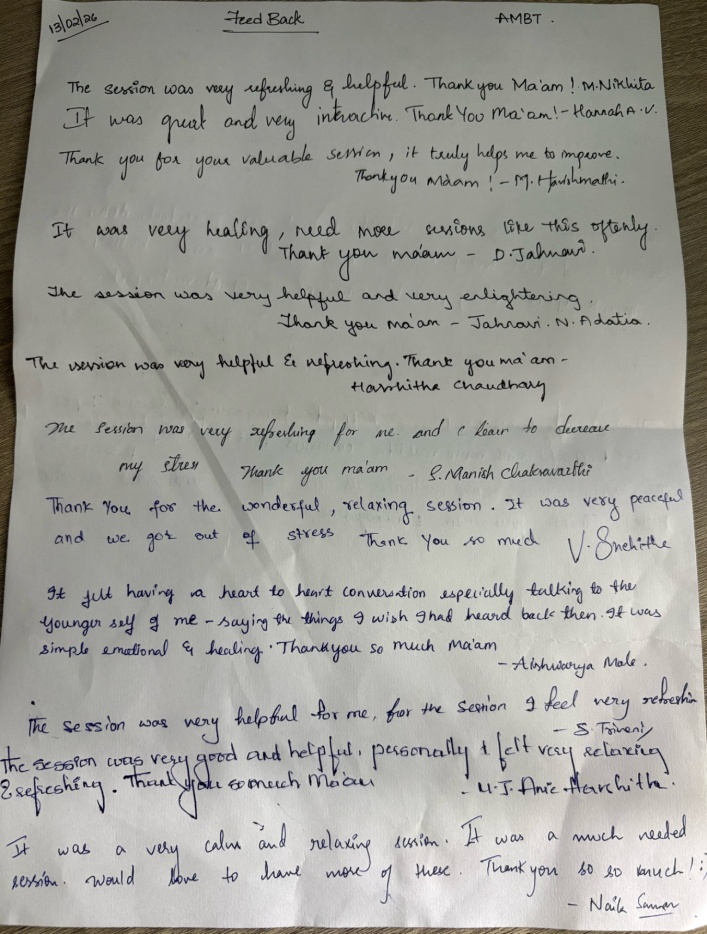 13/02/26
Feed Back
AMBT.
The session was very refreshing & helpful. Thank you Ma'am! M.Nikhita
It was great and very interactive. Thank You Ma'am! - Hannah A.V.
Thank you for your valuable session, it truly helps me to improve.
Thankyou Maam! - M. Harishmathi.
It was very healing, need more sessions like this oftenly.
Thank you ma'am - D. Jahnavi.
The session was very helpful and very enlightering.
Thank you ma'am - Jahnavi. N. Adatia.
The session was very helpful & refreshing. Thank you ma'am -
Harshitha Chaudhary
The session was very refreshing for me and I learn to decrease
my stress Thank you ma'am - S. Manish Chakravarthi
Thank You for the wonderful, relaxing session. It was very peaceful
and we got out of stress Thank You so much V. Snehitha
It felt having a heart to heart conversation especially talking to the
younger self of me - saying the things I wish I had heard back then. It was
simple emotional & healing. Thankyou so much Ma'am
- Aishwarya Male.
The session was very helpful for me, for the session I feel very refreshin
- S. Triveni
The session was very good and helpful, personally I felt very relaxing
& refreshing. Thank you so much Ma'am - U.J. Anie Harshitha.
It was a very calm and relaxing session. It was a much needed
session. Would love to have more of these. Thank you so so much! :)
- Naik Saman